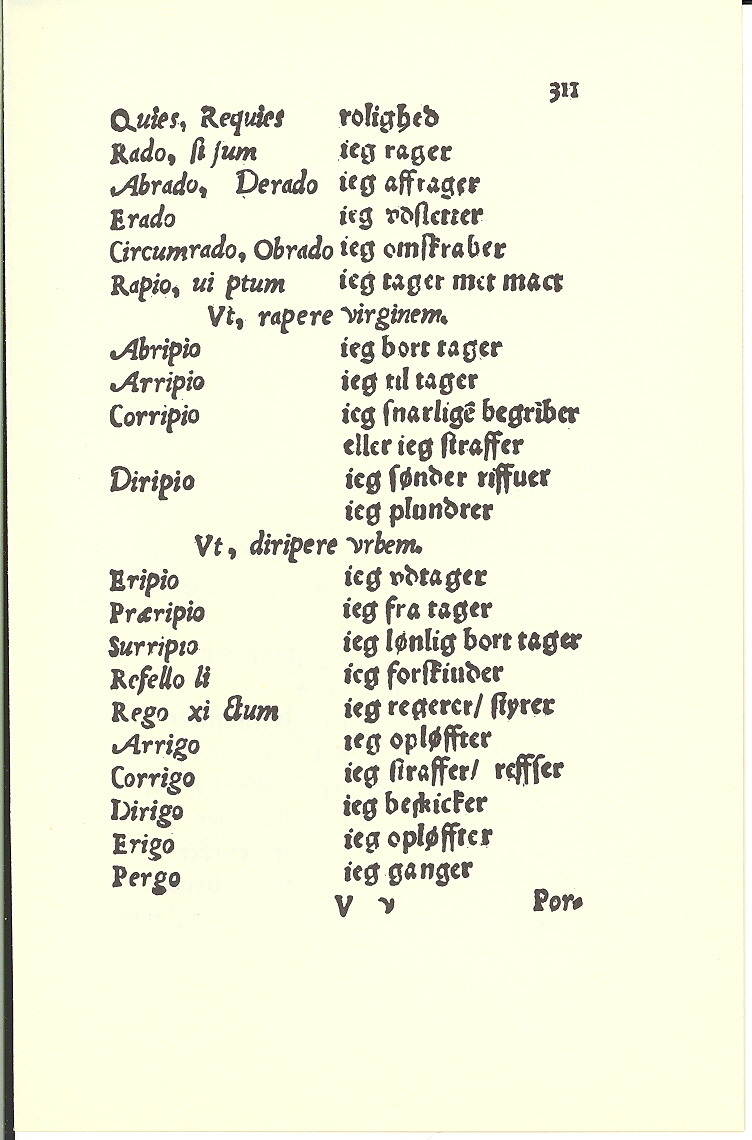 311
Quies, Requies rolighed
Rado, ſi ſum ieg rager
Abrado, Derado ieg affrager
Erado ieg vdſletter
Circumrado, Obrado ieg omſkraber
Rapio, ui ptum ieg tager met mact
Vt, rapere virginem.
Abripio ieg bort tager
Arripio ieg til tager
Corripio ieg ſnarligē begriber
eller ieg ſtraffer
Diripio ieg ſønder riffuer
ieg plundrer
Vt, diripere vrbem.
Eripio ieg vdtager
Præripio ieg fra tager
Surripio ieg lønlig bort tager
Refello li ieg forſkiuder
Rego xi ctum ieg regerer/ ſtyrer
Arrigo ieg opløffter
Corrigo ieg ſtraffer/ reffſer
Dirigo ieg beſkicker
Erigo ieg opløffter
Pergo ieg ganger
V v Por-